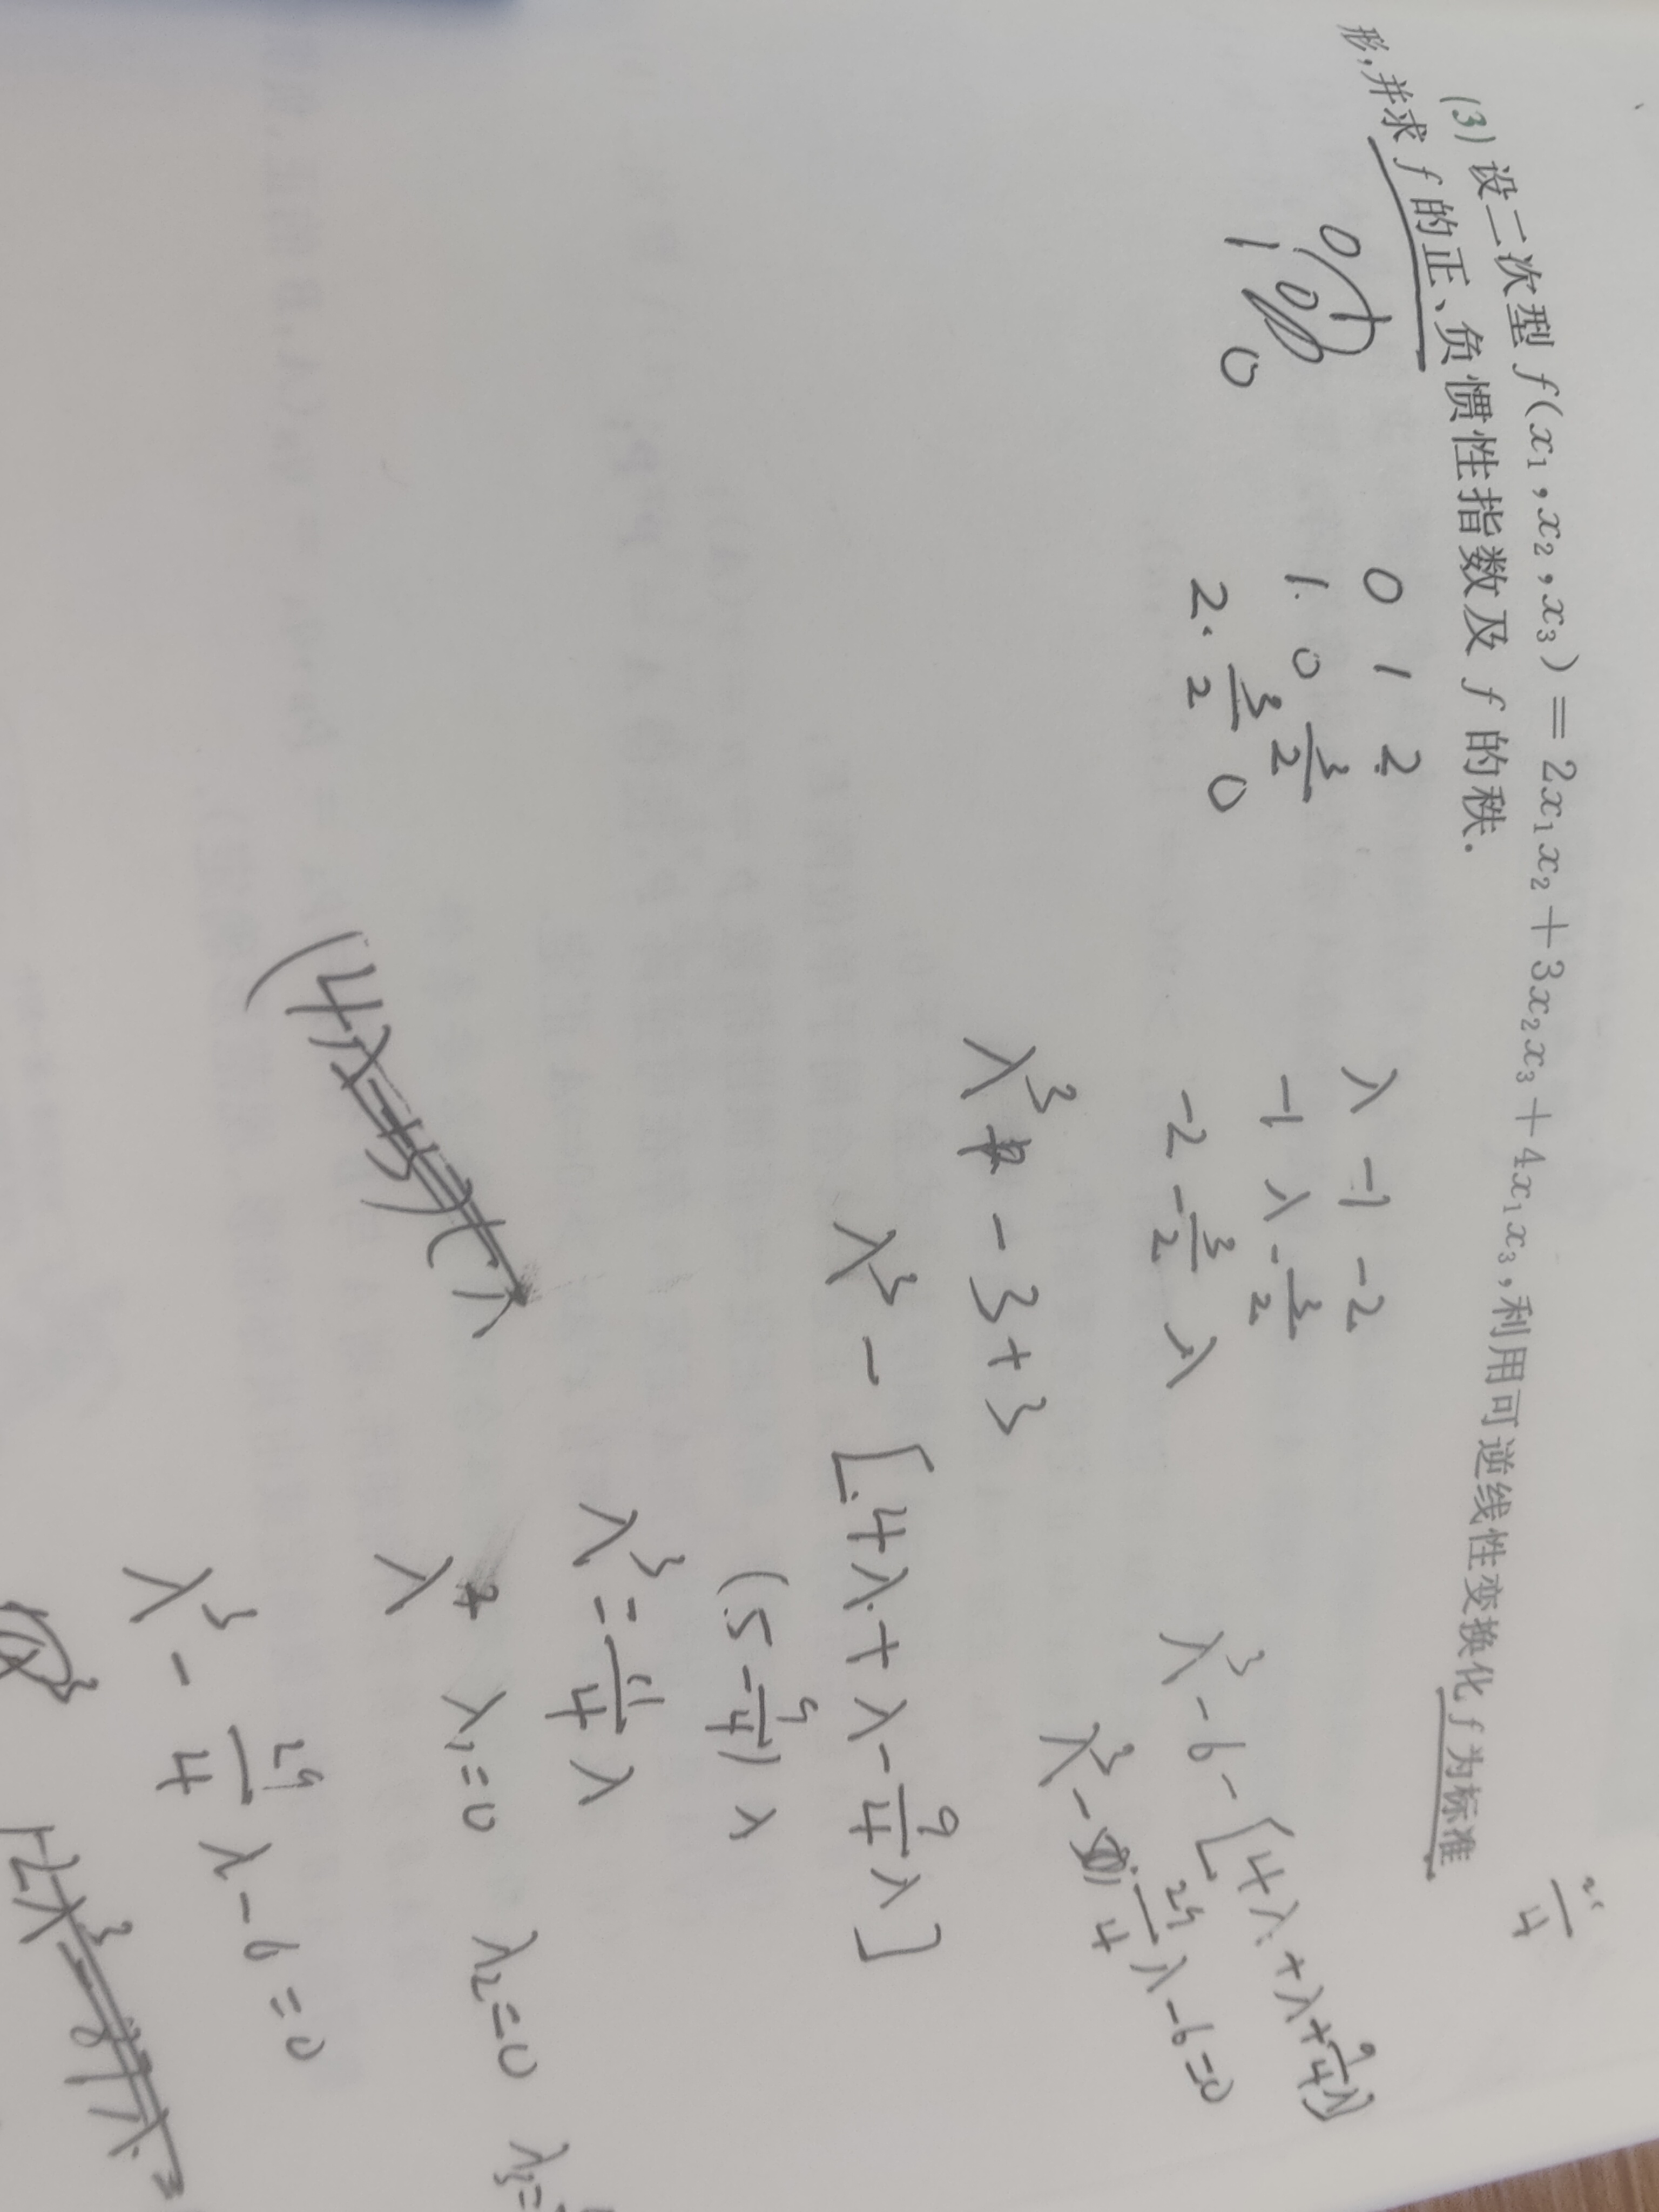 (3) 设二次型 f(x₁,x₂,x₃)=2x₁x₂+3x₂x₃+4x₁x₃,利用可逆线性变换化 f 为标准
形,并求 f 的正、负惯性指数及 f 的秩.
0 1
1 0
0 1 2
1. 0 3/2
2. 3/2 0
λ -1 -2
-1 λ -3/2
-2 -3/2 λ
λ³-6-[4λ+λ+9/4λ]
λ³- 29/4 λ-6=0
λ³ -3+3
λ³-[4λ+λ-9/4λ]
(5-9/4)λ
λ³=11/4 λ
λ λ₁=0 λ₂=0 λ₃=
λ³-29/4 λ-6=0